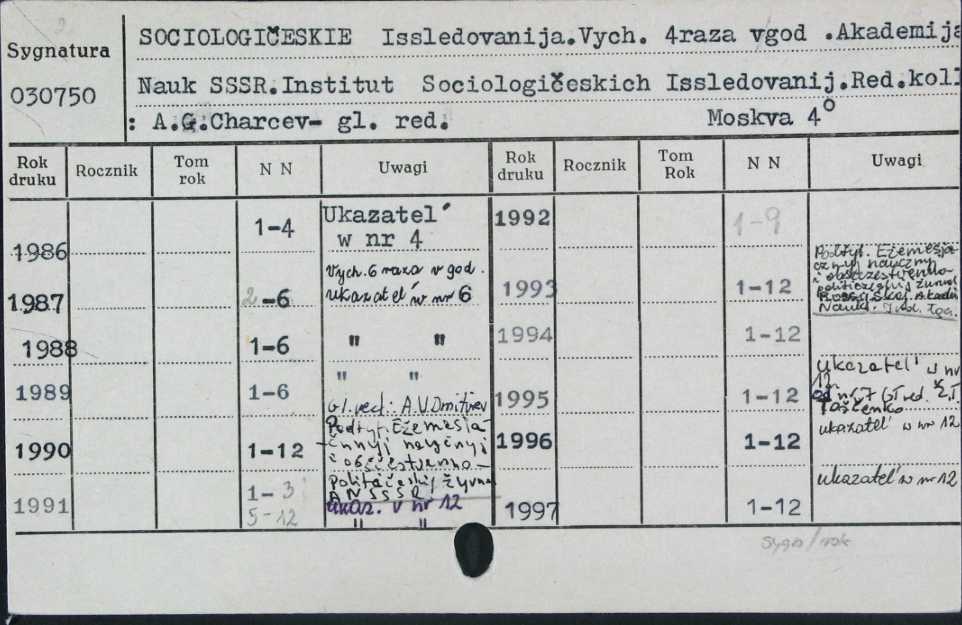 Sygnatura
030750
SOCIOLOGIČESKIE Issledovanija.Vych. 4raza vgod .Akademija
Nauk SSSR.Institut Sociologičeskich Issledovanij.Red.koll
: A.G.Charcev- gl. red. Moskva 4°
Rok druku Rocznik Tom rok N N Uwagi Rok druku Rocznik Tom Rok N N Uwagi
1986 1-4 Ukazatel´ w nr 4
1987 2-6 Vych. 6 raza v god. ukazatel´ w nr 6
1988 1-6 " "
1989 1-6 " "
Gl. red: A.V.Dmitriev
1990 1-12 Podtyt. Ežemesja-
čnyj naučnyj
i obščestvenno-
političeskij žurnal
ANSSSR
1991 1-3 ukaz. v nr 12
5-12 " "
1992 1-9
1993 1-12 Podtyt. Ežemesja
cznyj naucznyj
i obszczestwienno-
politiczeskij żurnal
Rossijskoj Akadem
Nauk.
1994 1-12
1995 1-12 ukazatel´ w nr
12
od nr 7 Gł red. Ž.T.
Toščenko
1996 1-12 ukazatel´ w nr 12
1997 1-12 ukazatel´ w nr 12